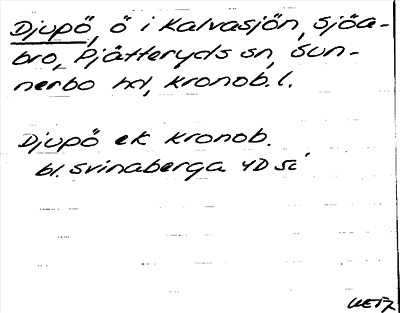 Djupö, ö i Kalvasjön, Sjöa-
bro, Pjätteryds sn, Sun-
nerbo hd, Kronob. l.
Djupö ek Kronob.
bl. Svinaberga 4D